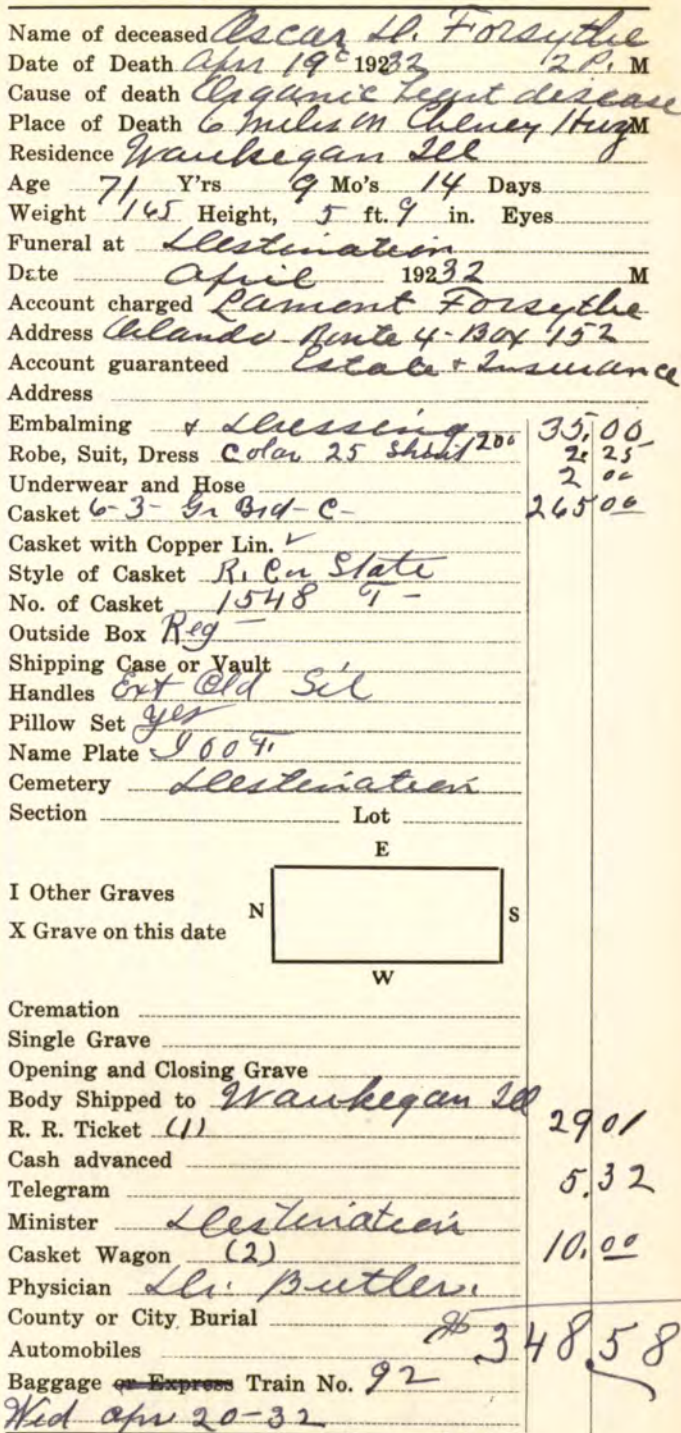 Name of deceased Oscar D. Forsythe
Date of Death Apr 19c 1932 2 P. M
Cause of death Organic Heart disease
Place of Death 6 miles on Cheney Hwy M
Residence Waukegan Ill
Age 71 Y'rs 9 Mo's 14 Days
Weight 165 Height, 5 ft. 9 in. Eyes
Funeral at Destination
Date April 1932 M
Account charged Lamont Forsythe
Address Orlando Route 4 - Box 152
Account guaranteed Estate + Insurance
Address
Embalming + Dressing 35.00
Robe, Suit, Dress Colar 25 Shirt 200 2.25
Underwear and Hose 2 00
Casket 6-3- Gr Brd - C - 265 00
Casket with Copper Lin. ✓
Style of Casket R. Cor State
No. of Casket 1548 T -
Outside Box Reg -
Shipping Case or Vault
Handles Ext Old Sil
Pillow Set yes
Name Plate I O O F.
Cemetery Destination
Section Lot
E
I Other Graves
N S
X Grave on this date
W
Cremation
Single Grave
Opening and Closing Grave
Body Shipped to Waukegan Ill
R. R. Ticket (1) 29 01
Cash advanced
Telegram 5.32
Minister Destination
Casket Wagon (2) 10.00
Physician Dr. Butler.
County or City Burial
Automobiles $ 348.58
Baggage or Express Train No. 92
Wed Apr 20-32